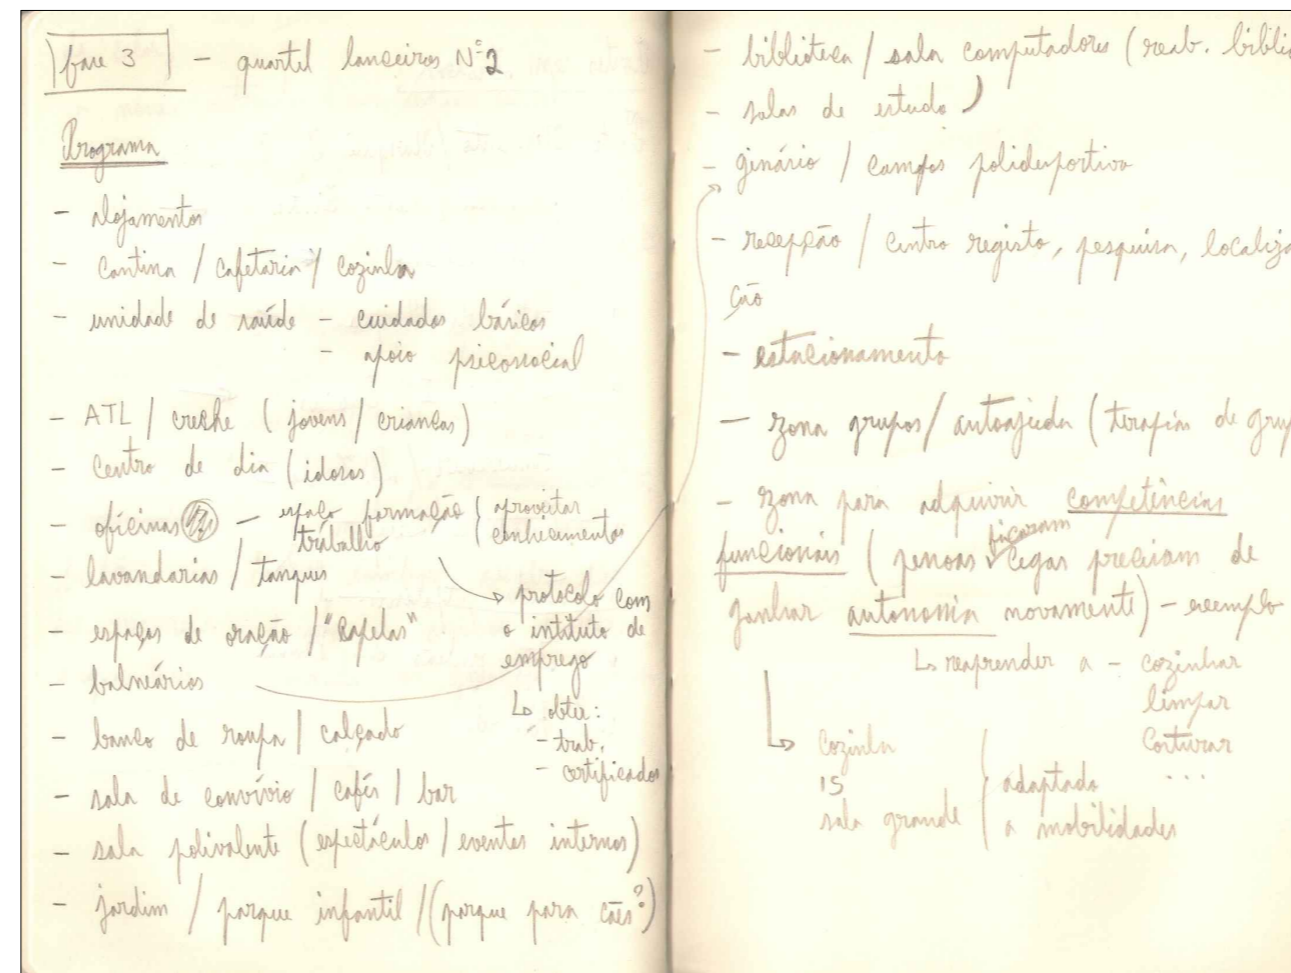 fase 3 - quartel lanceiros Nº2
Programa
- alojamentos
- cantina / cafetaria / cozinha
- unidade de saúde - cuidados básicos
- apoio psicosocial
- ATL / creche (jovens / crianças)
- centro de dia (idosos)
- oficinas - espaço formação { aproveitar
trabalho conhecimentos
- lavandarias / tanques
→ protocolo com
- espaços de oração / "Capelas" o intituto de
emprego
- balneários
↳ obter:
- banco de roupa / calçado
- trab.
- certificados
- sala de convívio / cafés / bar
- sala polivalente (espectáculos / eventos internos)
- jardim / parque infantil / (parque para cães?)
- biblioteca / sala computadores (reab. biblio
- salas de estudo )
- ginásio / campos polidesportivo
- recepção / centro registo, pesquisa, localiza
ção
- estacionamento
- zona grupos / autoajuda (terapias de grup
- zona para adquirir competências
ficaram
funcionais (pessoas cegas precisam de
ganhar autonomia novamente) - exemplo
↳ reaprender a - cozinhar
limpar
costurar
...
↳ cozinha
15
sala grande
adaptado
a mobilidades